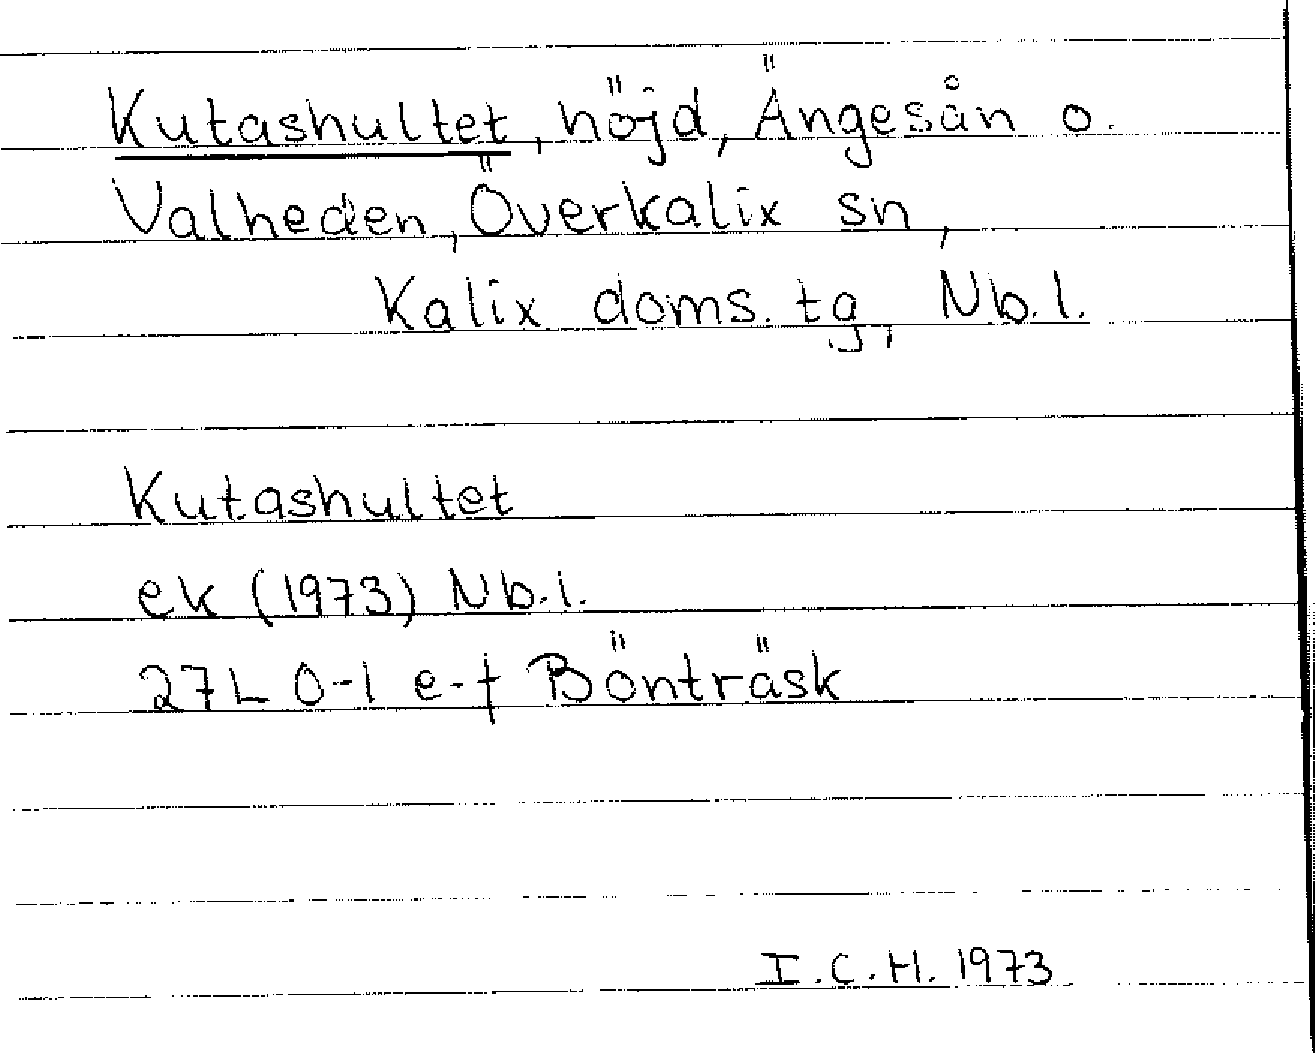 Kutashultet, höjd, Ängesån o.
Valheden, Överkalix sn,
Kalix doms. tg, Nb.l.
Kutashultet
ek (1973) Nb.l.
27L 0-1 e-f Bönträsk
I.C.H. 1973